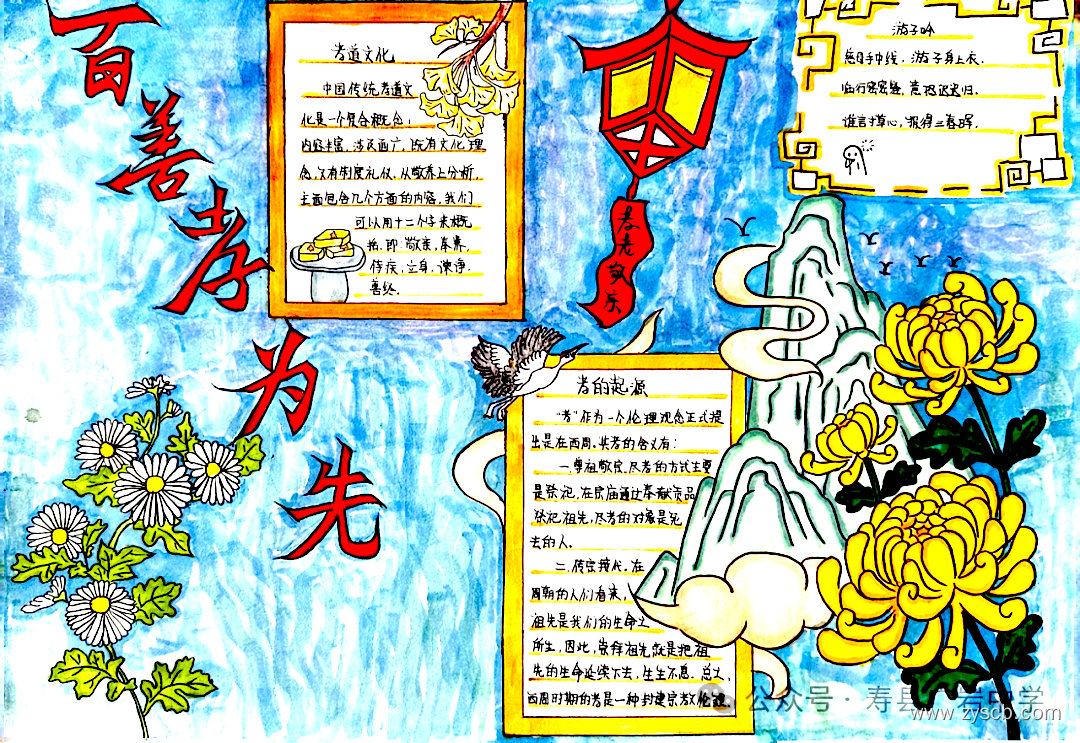 百善孝为先
孝道文化
中国传统孝道文
化是一个复合概念;
内容丰富,涉及面广,既有文化理
念,又有制度礼仪。从敬养上分析,
主要包含几个方面的内容,我们
可以用十二个字来概
括,即:敬亲,奉养,
侍疾,立身,谏诤,
善终。
孝老
游子吟
慈母手中线,游子身上衣。
临行密密缝,意恐迟迟归。
谁言寸草心,报得三春晖。
孝的起源
“孝”作为一个伦理观念正式提
出是在西周。其孝的含义有:
一.尊祖敬宗,尽孝的方式主要
是祭祀,在宗庙通过奉献贡品
祭祀祖先,尽孝的对象是死
去的人。
二.传宗接代。在
周朝的人们看来,
祖先是我们的生命之
所生,因此,崇拜祖先就是把祖
先的生命延续下去,生生不息。总之,
西周时期的孝是一种封建宗教伦理
公众号·寿县
中学
www.zyscb.com